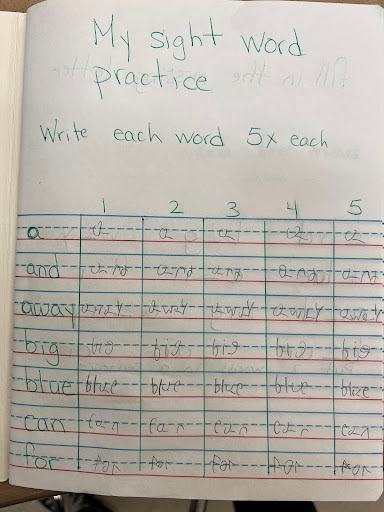 My sight word
practice
Write each word 5x each
1 2 3 4 5
a a a a a a
and and and and and and
away away away away away away
big big big big big big
blue blue blue blue blue blue
can can can can can can
for for for for for for